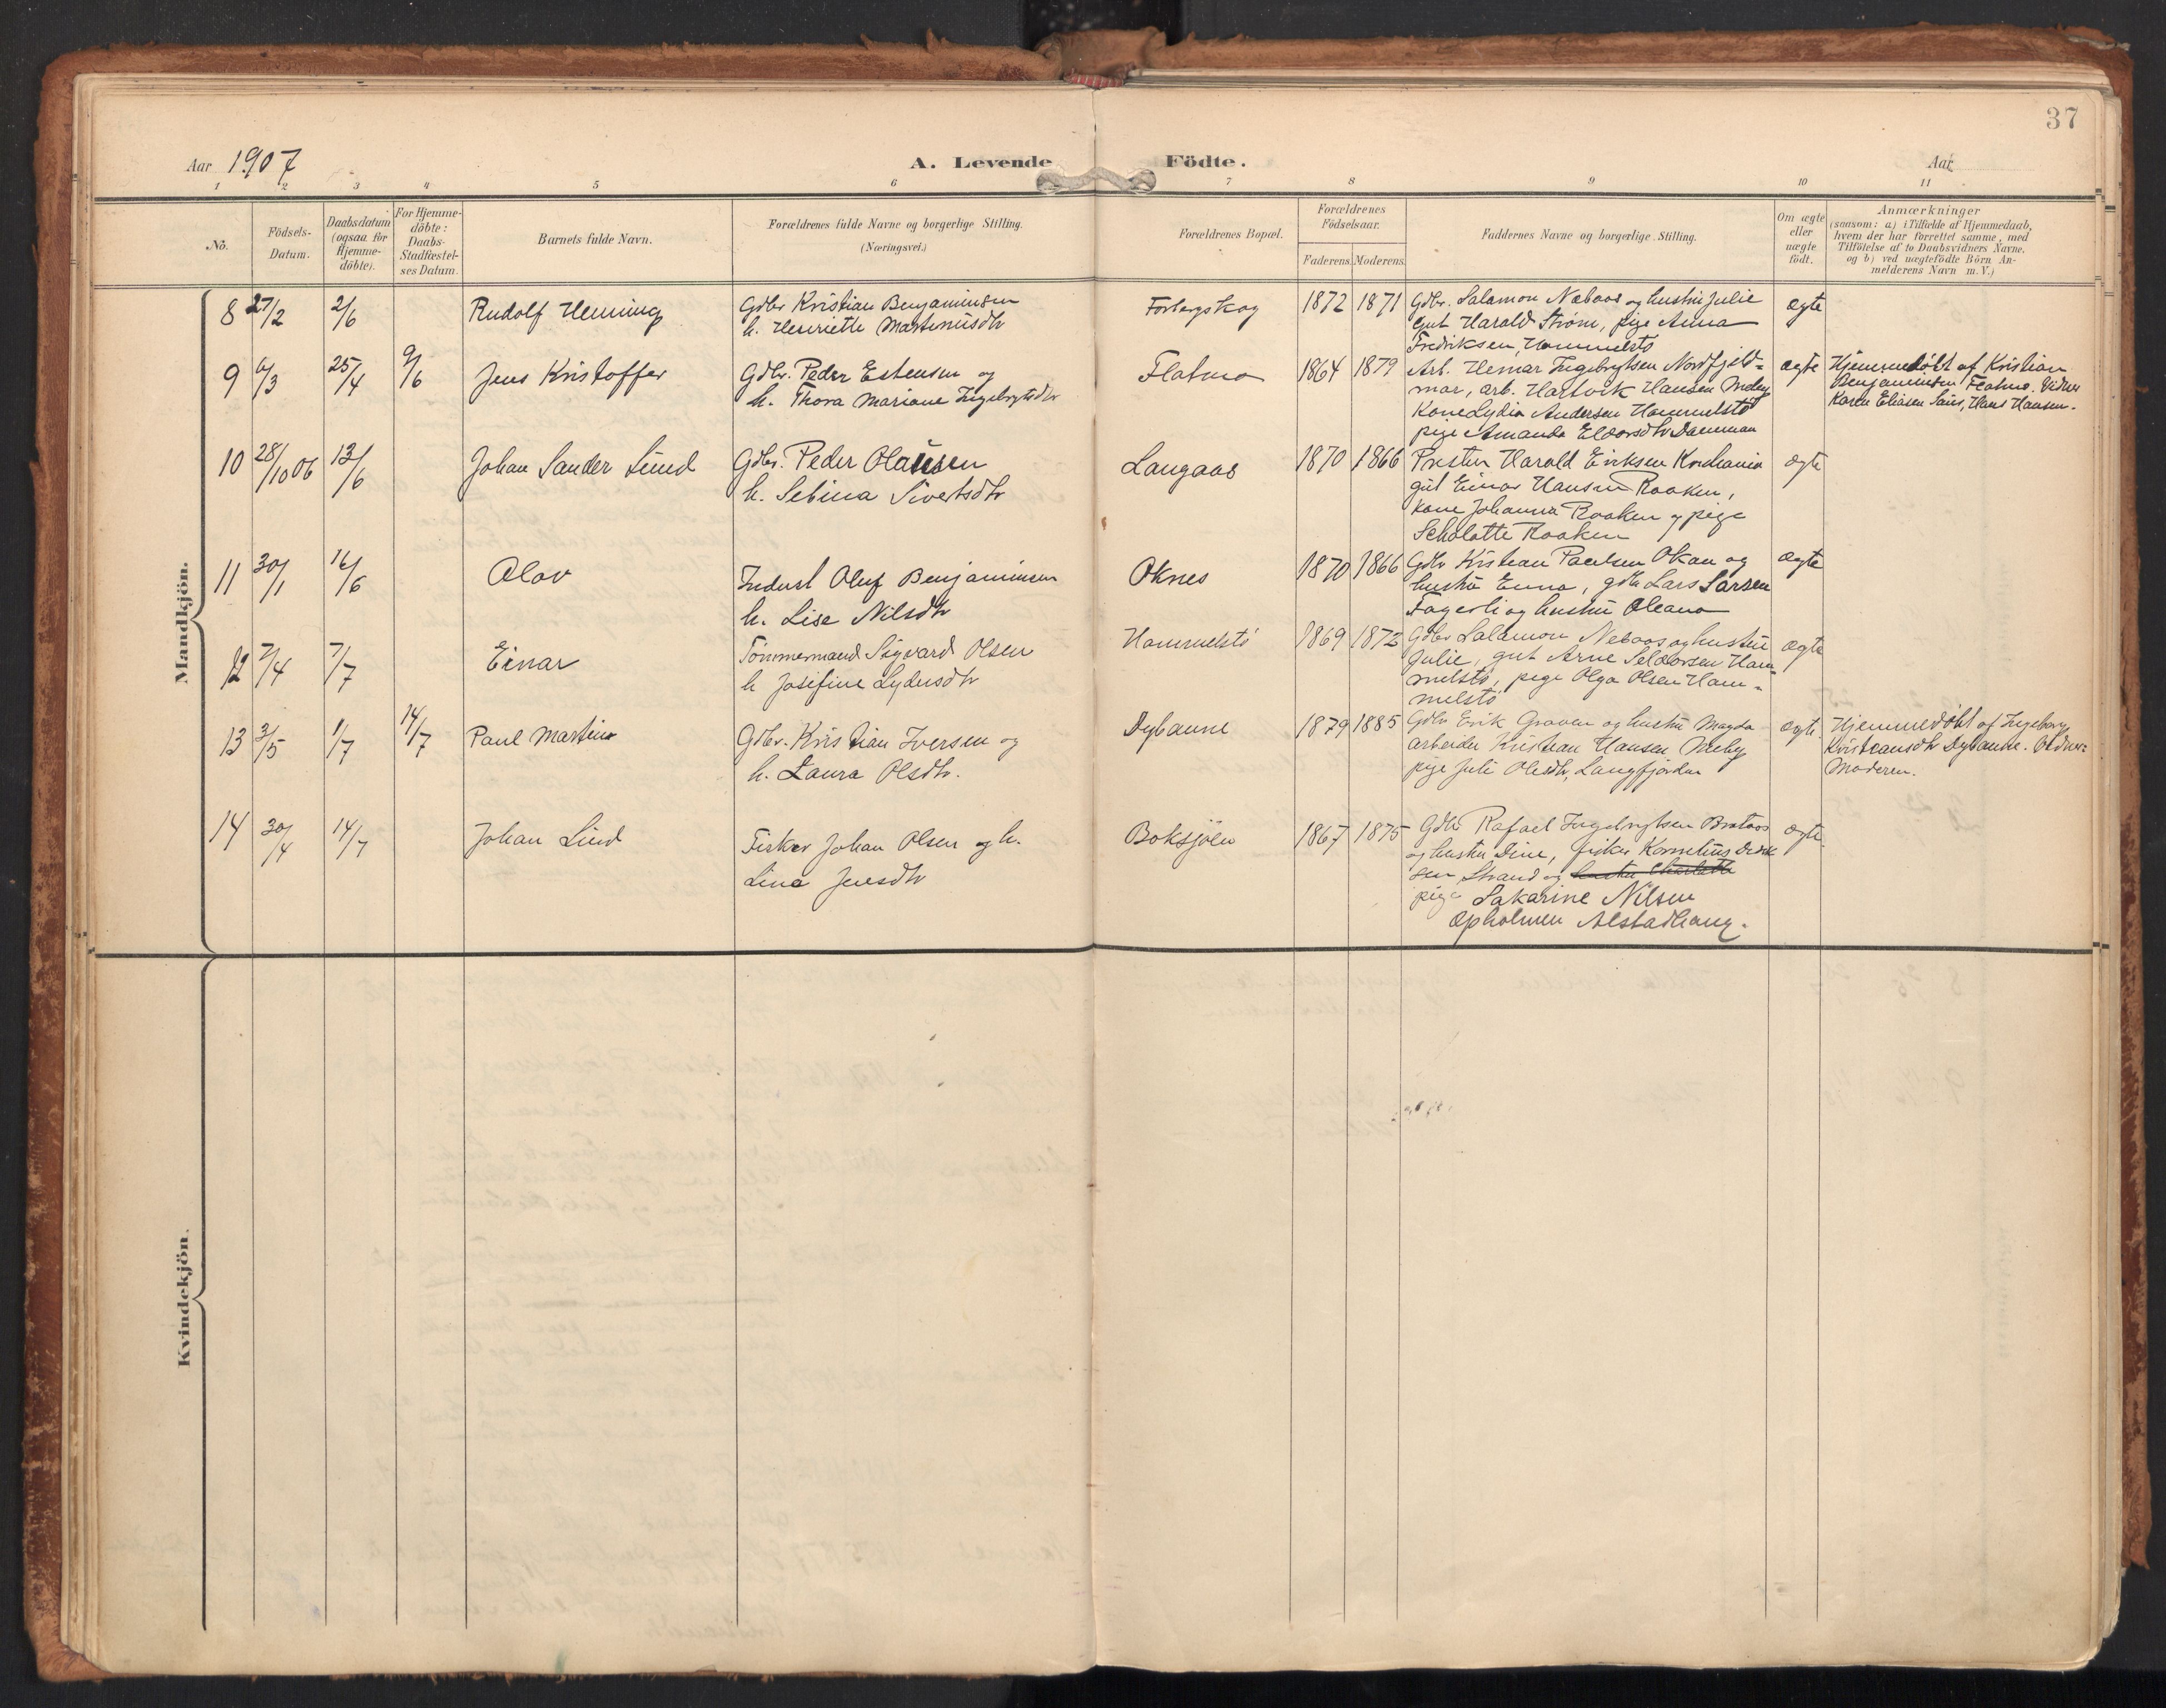 37
Aar 1907 A. Levende Födte. Aar
1 2 3 4 5 6 7 8 9 10 11
No.
Födsels-
Datum.
Daabsdatum
(ogsaa for
Hjemme-
döbte).
For Hjemme-
döbte:
Daabs-
Stadfæstel-
ses Datum.
Barnets fulde Navn.
Forældrenes fulde Navne og borgerlige Stilling.
(Næringsvei.)
Forældrenes Bopæl.
Forældrenes
Födselsaar.
Faderens. Moderens.
Faddernes Navne og borgerlige Stilling.
Om ægte
eller
uægte
födt.
Anmærkninger
(saasom: a) i Tilfælde af Hjemmedaab,
hvem der har forrettet samme, med
Tilföielse af to Daabsvidners Navne,
og b) ved uægtefödte Börn An-
melderens Navn m. V.)
Mandkjön.
8 27/2 2/6 Rudolf Henning
Gdbr Kristian Benjaminsen
h. Henriette Martinusdtr
Forbergskog 1872 1871
Gdbr. Salamon Næbaas og hustru Julie
gut Harald Strøm, pige Anna
Fredriksen, Hommelstö
ægte
9 6/3 25/4 9/6 Jens Kristoffer
Gdbr. Peder Estensen og
h. Thora Mariane Ingebrigtsdtr
Flatmo 1864 1879
Arb. Hemar Ingebrigtsen Nordfjeld-
mar, arb. Hartvik Hansen Meby
Kone Lydia Andersen Hommelstö
pige Amanda
ægte
Hjemmedöbt af Kristian
Benjaminsen Flatmo. Vidner
Karen Eliasen Saus, Hans Hansen.
10 28/10 06 13/6 Johan Sander Lund
Gdbr. Peder Olausen
h. Sebina Sivertsdtr
Langaas 1870 1866
Presten Harald Eriksen Kristiania
gut Einar Hansen Raaken,
kone Johanna Raaken og pige
Scholatte Raaken
ægte
11 30/1 16/6 Olav
Indust Oluf Benjaminsen
h. Lise Nilsdtr
Oknes 1870 1866
Gdbr Kristian Paulsen Okan og
hustru Enna, gdbr Lars Larsen
Fagerli og hustru Oleana
ægte
12 7/4 7/7 Einar
Tömmermand Sigvard Olsen
h Josefine Lydersdtr
Hommelstö 1869 1872
Gdbr Salamon Nebaas og hustru
Julie, gut Arne Seldorsen Ham
melstö, pige Olga Olsen Ham-
melstö
ægte
13 3/5 1/7 14/7 Paul Martin
Gdbr. Kristian Iversen og
h. Laura Olsdtr.
Dybaune 1879 1885
Gdbr Erik Graven og hustru Magda
arbeider Kristian Hansen Meby
pige Juli Olesdtr, Langfjorden
ægte.
Hjemmedöbt af Ingeborg
Kristiansdtr Dybaune. Vidner:
Moderen.
14 30/4 14/7 Johan Lind
Fisker Johan Olsen og h.
Lina Jensdtr
Boksjöen 1867 1875
Gdbr Rafael Ingebrigtsen Brataas
og hustru Dine, fisker Kornelius Didrik
sen Strand og hustru Charlotte
pige Sakarine Nilsen
Opholmen Alstadhaug.
ægte.
Kvindekjön.